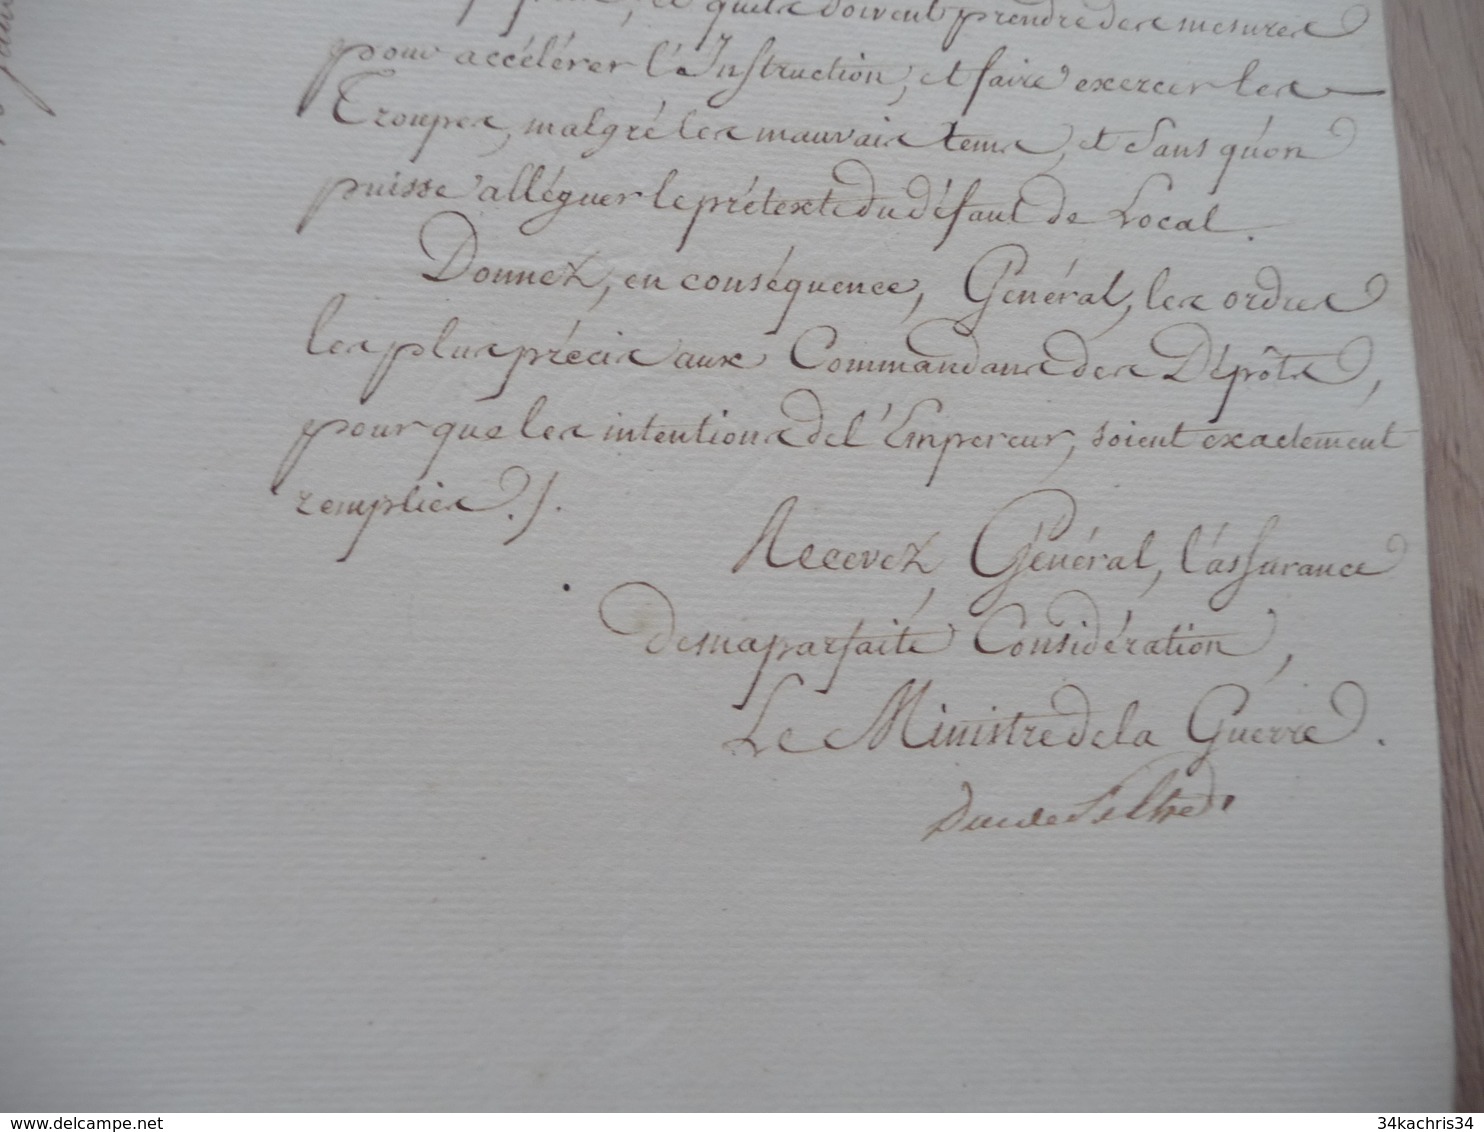 et qu'els doivent prendre des mesures
pour accélérer l'Instruction, et faire exercer les
Troupes, malgré les mauvais tems, et sans qu'on
puisse alléguer le prétexte du défaut de Local.
Donnez, en conséquence, Général, les ordres
les plus précis aux Commandans des Dépôts,
pour que les intentions de l'Empereur, soient exactement
remplies ./.
Recevez, Général, l'assurance
de ma parfaite Considération,
Le Ministre de la Guerre.
Duc de Feltre
delcampe.net
34kachris34